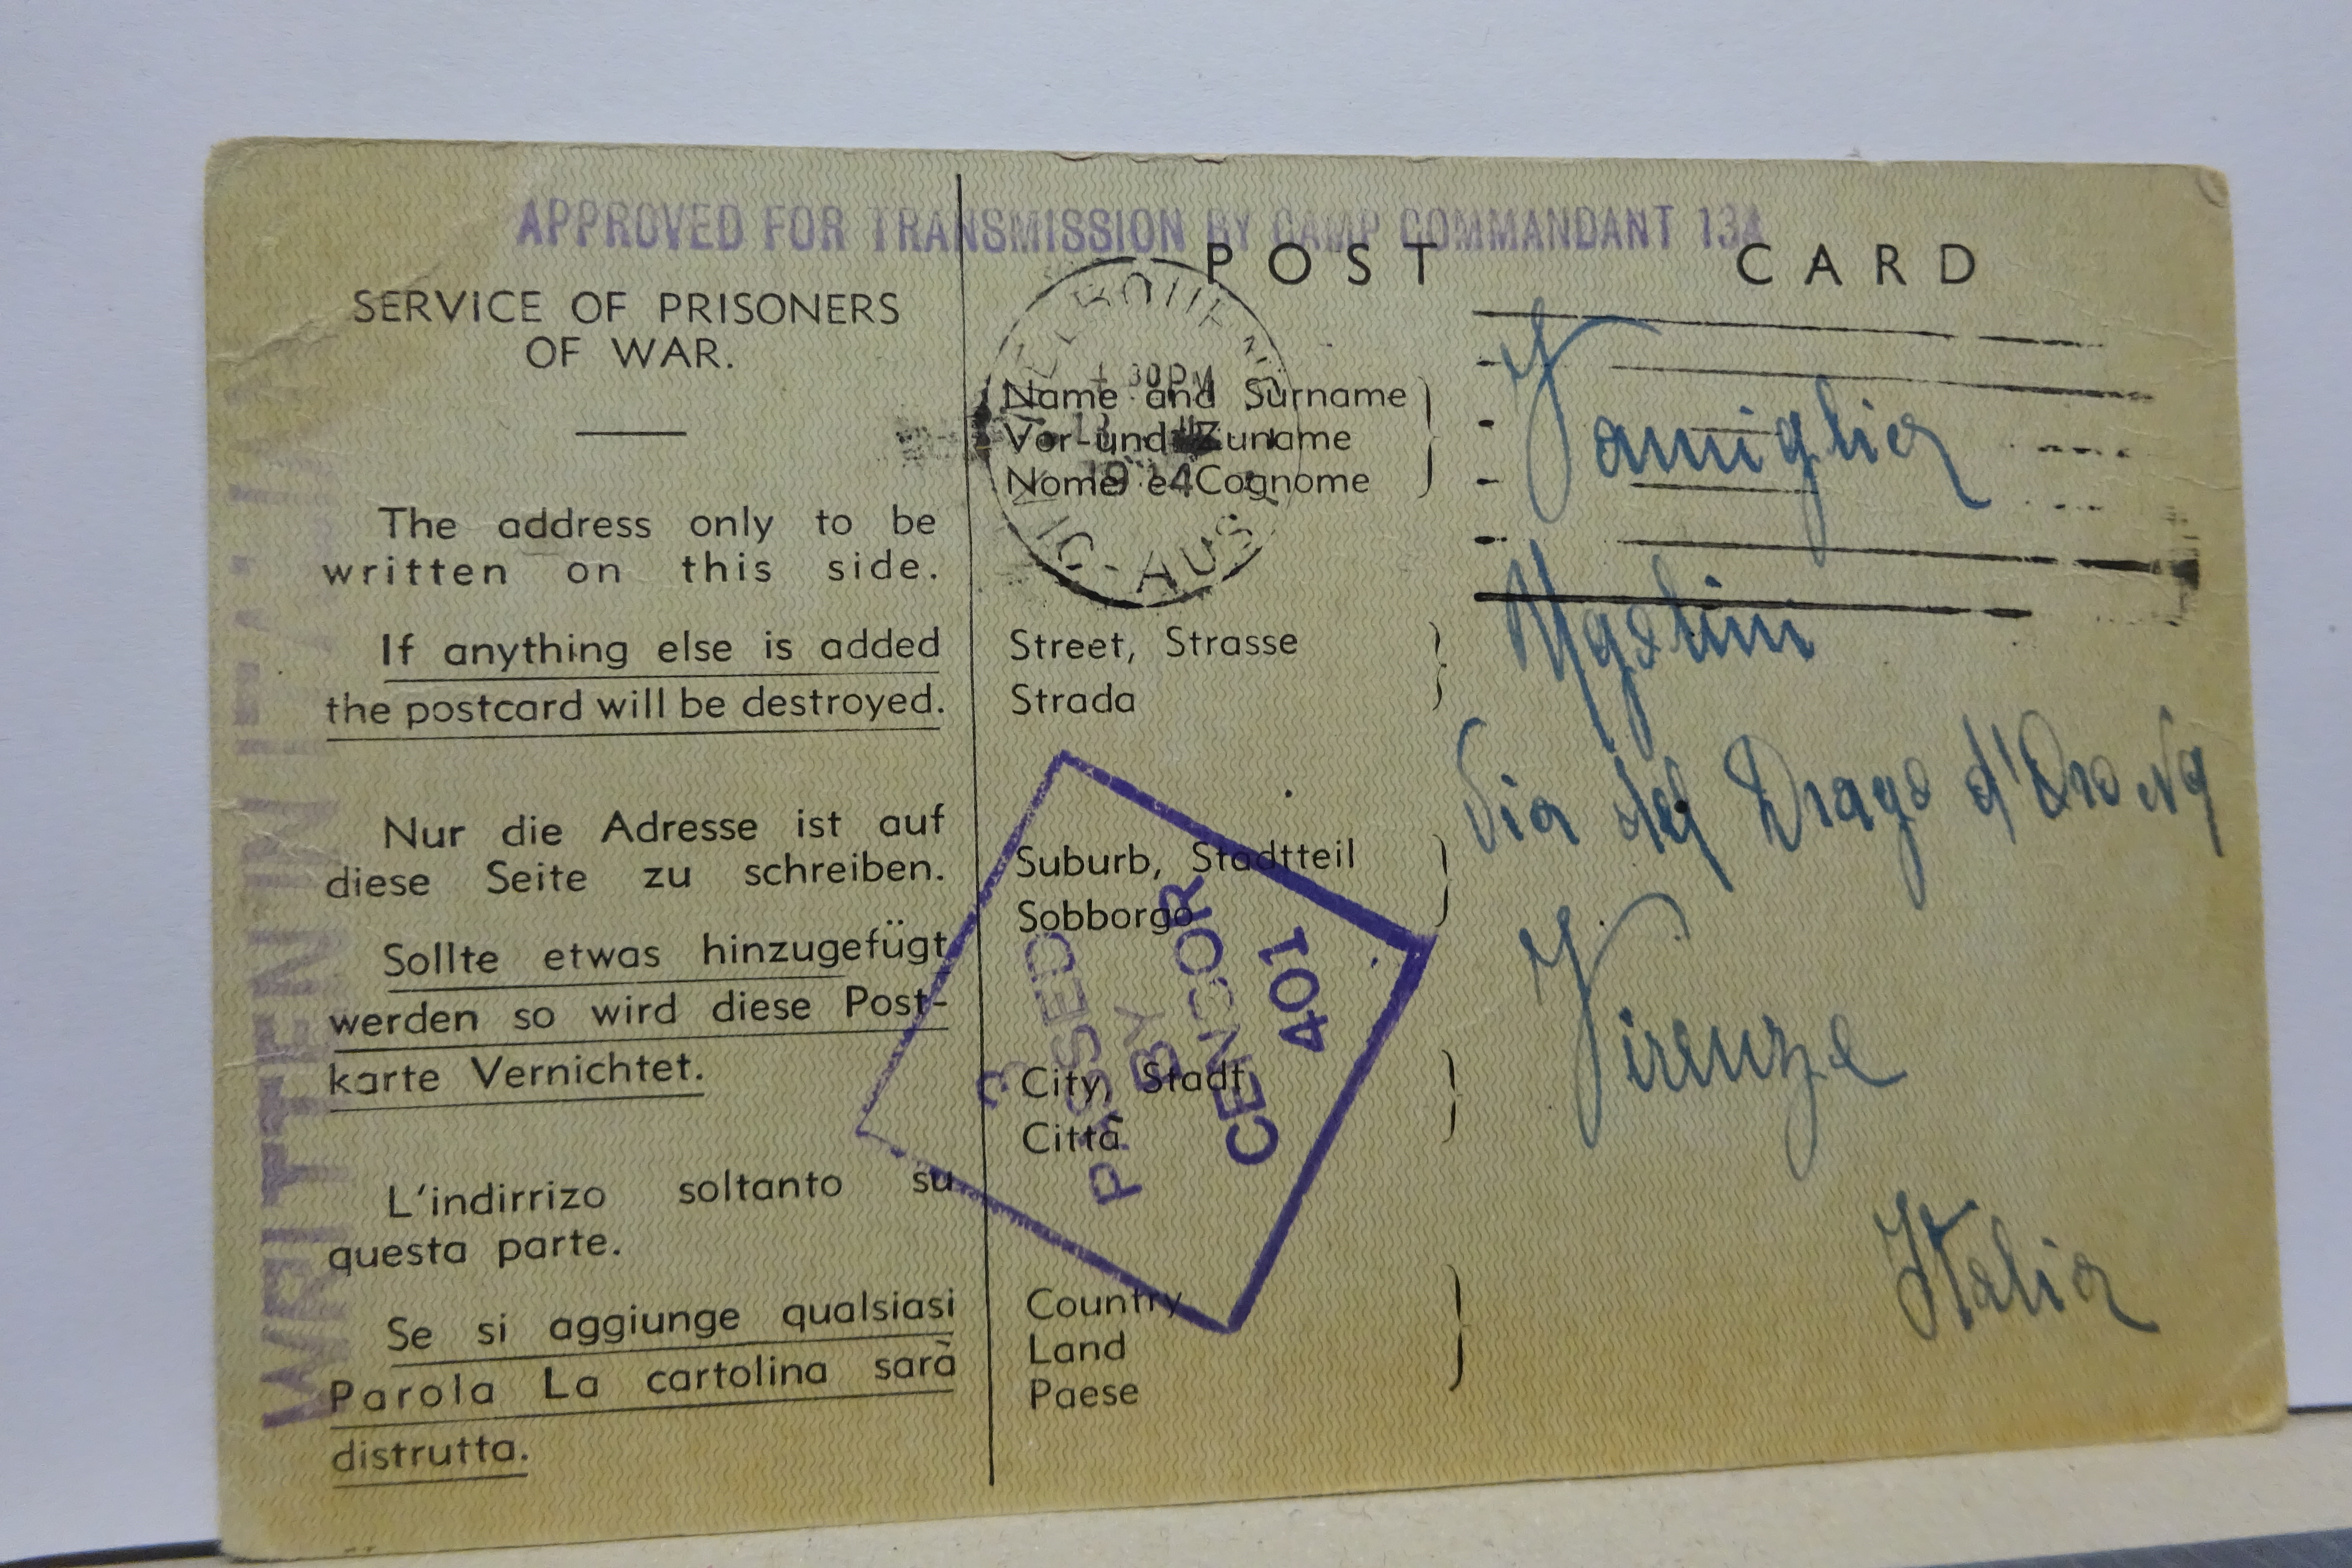 APPROVED FOR TRANSMISSION BY CAMP COMMANDANT 13A
POST CARD
SERVICE OF PRISONERS
OF WAR.
The address only to be
written on this side.
If anything else is added
the postcard will be destroyed.
Nur die Adresse ist auf
diese Seite zu schreiben.
Sollte etwas hinzugefügt
werden so wird diese Post-
karte Vernichtet.
L'indirrizo soltanto su
questa parte.
Se si aggiunge qualsiasi
Parola La cartolina sarà
distrutta.
WRITTEN IN ITALIAN
MELBOURNE
30PM
VIC-AUST
Name and Surname
Vor-und Zuname
Nome e Cognome
Famiglia
Street, Strasse
Strada
Via del Drago d'Oro
Suburb, Stadtteil
Sobborgo
Firenze
City, Stadt
Città
Country
Land
Paese
Italia
3
PASSED
BY
CENSOR
401